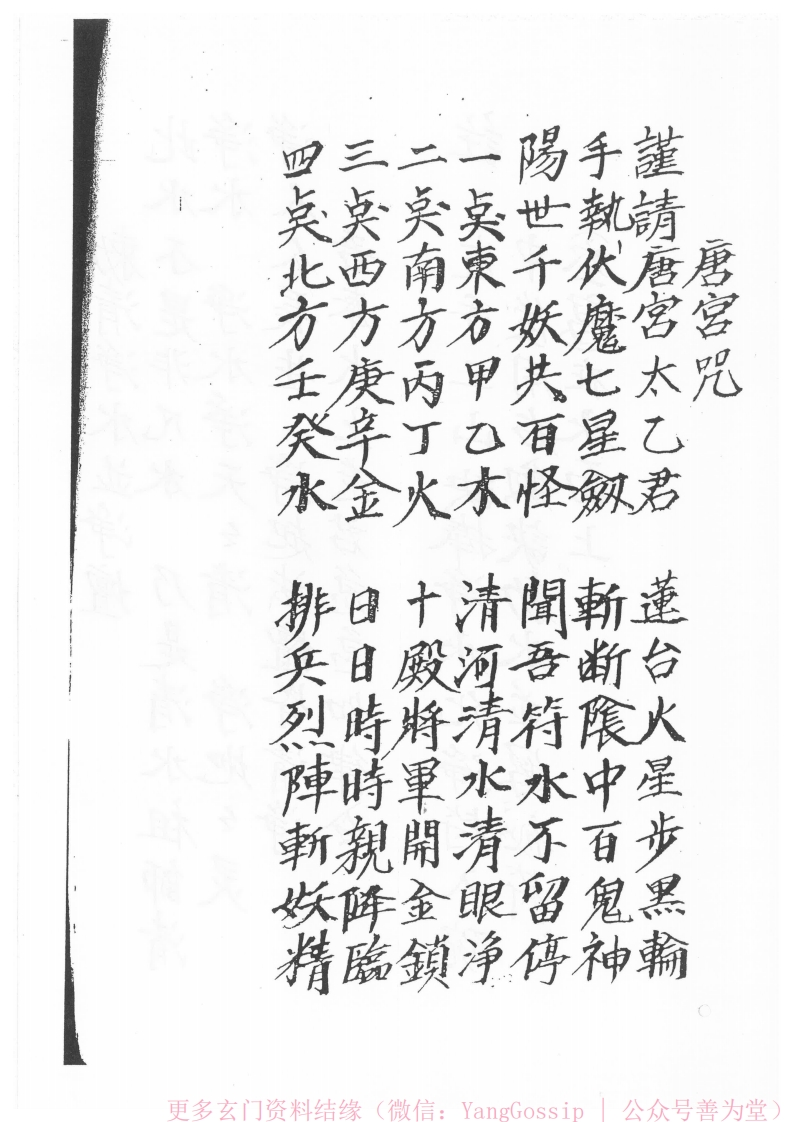 唐宮咒
謹請唐宮太乙君 蓮台火星步黑輪
手執伏魔七星劔 斬断陰中百鬼神
陽世千妖共百怪 聞吾符水不留停
一奌東方甲乙木 清河清水清眼淨
二奌南方丙丁火 十殿將軍開金鎖
三奌西方庚辛金 日日時時親降臨
四奌北方壬癸水 排兵烈陣斬妖精
更多玄门资料结缘（微信：YangGossip | 公众号善为堂）